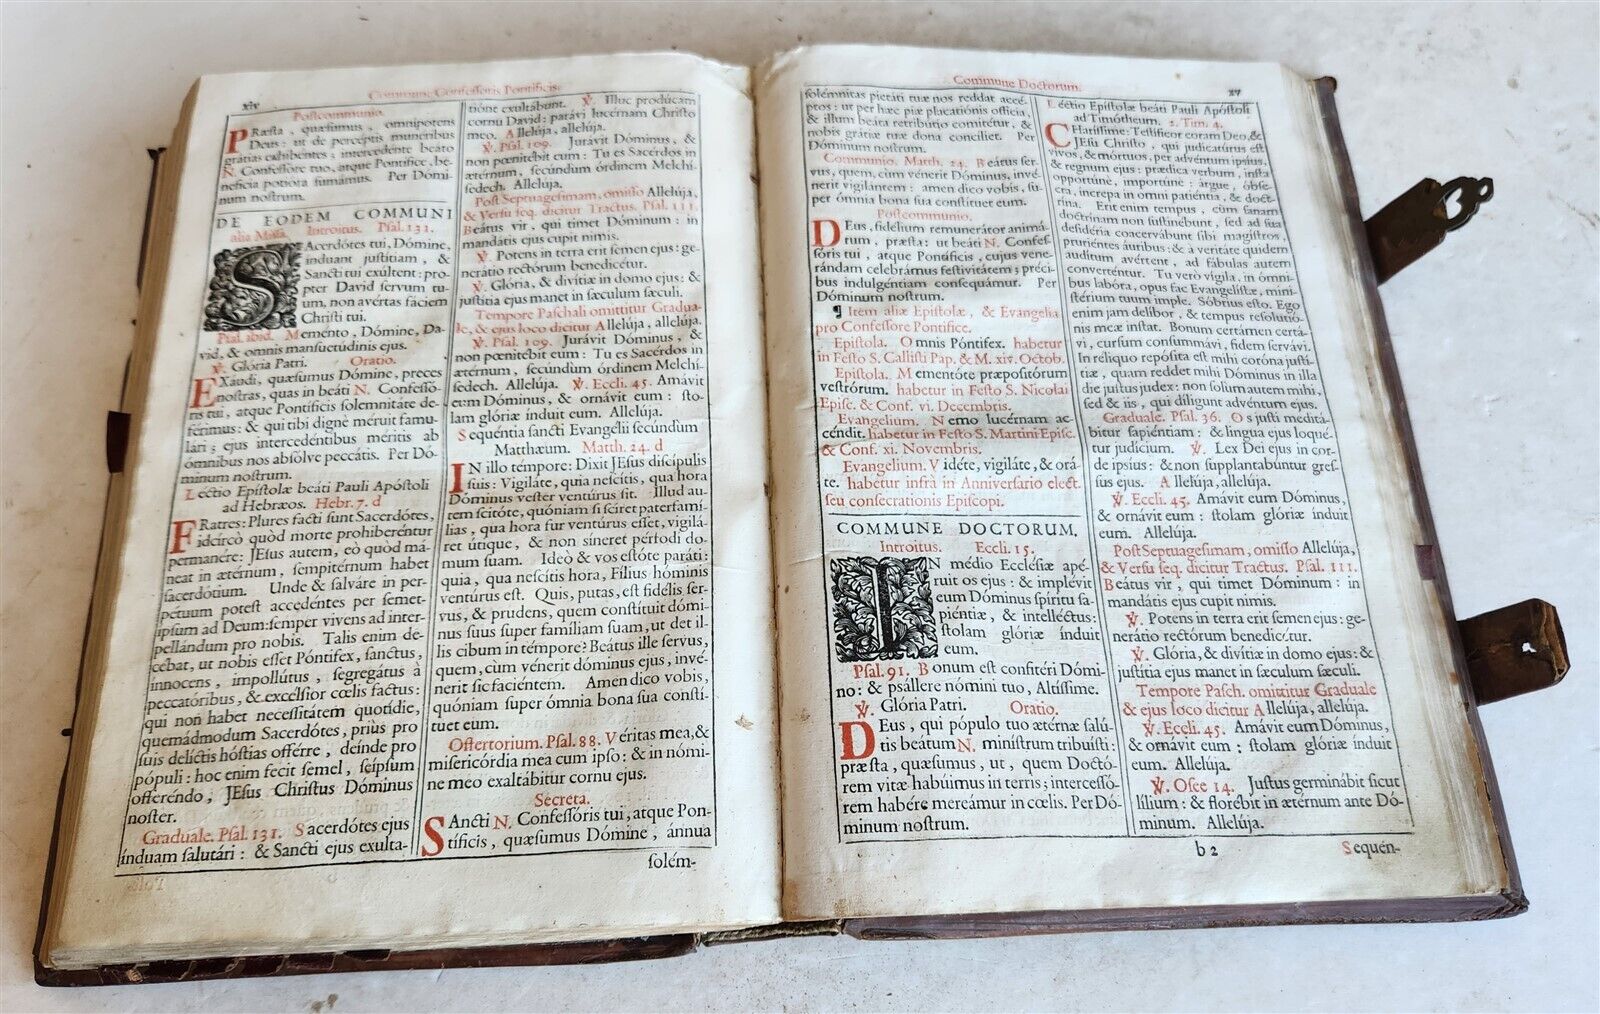 xiv
Commune Confessoris Pontificis.
Postcommunio.
PRæsta, quæsumus, omnipotens
Deus: ut de perceptis muneribus
gratias exhibentes; intercedente beáto
N. Confessóre tuo, atque Pontífice, be-
nefícia potióra sumámus. Per Dómi-
num nostrum.
DE EODEM COMMUNI
alia Missa. Introitus. Psal. 131.
SAcerdótes tui, Dómine,
induant justítiam, &
Sancti tui exultent: pro-
pter David servum tu-
um, non avértas fáciem
Christi tui.
Psal. ibid. Memento, Dómine, Da-
vid, & omnis mansuetúdinis ejus.
℣. Glória Patri. Oratio.
EXáudi, quæsumus Dómine, preces
nostras, quas in beáti N. Confessó-
ris tui, atque Pontíficis solemnitáte de-
férimus: & qui tibi dignè méruit famu-
lári; ejus intercedéntibus méritis ab
ómnibus nos absólve peccátis. Per Dó-
minum nostrum.
Lectio Epistolæ beáti Pauli Apóstoli
ad Hebræos. Hebr. 7. d
FRatres: Plures facti sunt Sacerdótes,
idcircò quòd morte prohiberéntur
permanére: JEsus autem, eò quòd má-
neat in ætérnum, sempitérnum habet
sacerdótium. Unde & salváre in per-
pétuum potest accedéntes per semet-
ipsum ad Deum: semper vivens ad inter-
pellándum pro nobis. Talis enim de-
cébat, ut nobis esset Póntifex, sanctus,
ínnocens, impollútus, segregátus à
peccatóribus, & excélsior cœlis factus:
qui non habet necessitátem quotídie,
quemádmodum Sacerdótes, priùs pro
suis delíctis hóstias offérre, deínde pro
pópuli: hoc enim fecit semel, seípsum
offeréndo, JEsus Christus Dóminus
noster.
Graduale. Psal. 131. Sacerdótes ejus
índuam salutári: & Sancti ejus exulta-
tióne exultábunt. ℣. Illuc prodúcam
cornu David: parávi lucernam Christo
meo. Allelúja, allelúja.
℣. Psal. 109. Jurávit Dóminus, &
non pœnitébit eum: Tu es Sacérdos in
ætérnum, secúndum órdinem Melchí-
sedech. Allelúja.
Post Septuagesimam, omisso Allelúja,
& Versu seq. dicitur Tractus. Psal. 111.
Beátus vir, qui timet Dóminum: in
mandátis ejus cupit nimis.
℣. Potens in terra erit semen ejus: ge-
nerátio rectórum benedicétur.
℣. Glória, & divítiæ in domo ejus: &
justítia ejus manet in sæculum sæculi.
Tempore Paschali omittitur Gradua-
le, & ejus loco dicitur Allelúja, allelúja.
℣. Psal. 109. Jurávit Dóminus, &
non pœnitébit eum: Tu es Sacérdos in
ætérnum, secúndum órdinem Melchí-
sedech. Allelúja. ℣. Eccli. 45. Amávit
eum Dóminus, & ornávit eum: sto-
lam glóriæ índuit eum. Allelúja.
Sequéntia sancti Evangélii secúndùm
Matthæum. Matth. 24. d
IN illo témpore: Dixit JEsus discípulis
suis: Vigiláte, quia nescítis, qua hora
Dóminus vester ventúrus sit. Illud au-
tem scitóte, quóniam si sciret paterfamí-
lias, qua hora fur ventúrus esset, vigilá-
ret útique, & non síneret pérfodi do-
mum suam. Ideò & vos estóte paráti:
quia, qua nescítis hora, Fílius hóminis
ventúrus est. Quis, putas, est fidélis ser-
vus, & prudens, quem constítuit dómi-
nus suus super famíliam suam, ut det il-
lis cibum in témpore? Beátus ille servus,
quem, cùm vénerit dóminus ejus, invé-
nerit sic faciéntem. Amen dico vobis,
quóniam super ómnia bona sua constí-
tuet eum.
Offertorium. Psal. 88. Véritas mea, &
misericórdia mea cum ipso: & in nómi-
ne meo exaltábitur cornu ejus.
Secreta.
SAncti N. Confessóris tui, atque Pon-
tíficis, quæsumus Dómine, ánnua
solém-
Commune Doctorum.
xv
solémnitas pietáti tuæ nos reddat accé-
ptos: ut per hæc piæ placatiónis offícia,
& illum beáta retribútio comitétur, &
nobis grátiæ tuæ dona concíliet. Per
Dóminum nostrum.
Communio. Matth. 24. Beátus ser-
vus, quem, cùm vénerit Dóminus, invé-
nerit vigilántem: amen dico vobis, su-
per ómnia bona sua constítuet eum.
Postcommunio.
DEus, fidélium remunerátor animá-
rum, præsta: ut beáti N. Confes-
sóris tui, atque Pontíficis, cujus vene-
rándam celebrámus festivitátem; préci-
bus indulgéntiam consequámur. Per
Dóminum nostrum.
¶ Item aliæ Epistolæ, & Evangelia
pro Confessore Pontifice.
Epistola. Omnis Póntifex. habetur
in Festo S. Callisti Pap. & M. xiv. Octob.
Epistola. Mementóte præpositórum
vestrórum. habetur in Festo S. Nicolai
Episc. & Conf. vi. Decembris.
Evangelium. Nemo lucérnam ac-
céndit. habetur in Festo S. Martini Episc.
& Conf. xi. Novembris.
Evangelium. Vidéte, vigiláte, & orá-
te. habetur infrà in Anniversario elect.
seu consecrationis Episcopi.
COMMUNE DOCTORUM.
Introitus. Eccli. 15.
IN médio Ecclésiæ apé-
ruit os ejus: & implévit
eum Dóminus spíritu sa-
piéntiæ, & intelléctus:
stolam glóriæ índuit
eum.
Psal. 91. Bonum est confitéri Dómi-
no: & psállere nómini tuo, Altíssime.
℣. Glória Patri. Oratio.
DEus, qui pópulo tuo ætérnæ salú-
tis beátum N. minístrum tribuísti:
præsta, quæsumus, ut, quem Doctó-
rem vitæ habúimus in terris; intercessó-
rem habére mereámur in cœlis. Per Dó-
minum nostrum.
Léctio Epístolæ beáti Pauli Apóstoli
ad Timótheum. 2. Tim. 4.
CHaríssime: Testíficor coram Deo, &
JEsu Christo, qui judicatúrus est
vivos, & mórtuos, per advéntum ipsíus,
& regnum ejus: prædica verbum, insta
opportúnè, importúnè: árgue, óbse-
cra, íncrepa in omni patiéntia, & doct-
rína. Erit enim tempus, cùm sanam
doctrínam non sustinébunt, sed ad sua
desidéria coacervábunt sibi magístros,
pruriéntes áuribus: & à veritáte quidem
audítum avértent, ad fábulas autem
converténtur. Tu verò vígila, in ómni-
bus labóra, opus fac Evangelístæ, mini-
stérium tuum imple. Sóbrius esto. Ego
enim jam delíbor, & tempus resolutió-
nis meæ instat. Bonum certámen certá-
vi, cursum consummávi, fidem servávi.
In réliquo repósita est mihi coróna justí-
tiæ, quam reddet mihi Dóminus in illa
die justus judex: non solùm autem mihi,
sed & iis, qui díligunt advéntum ejus.
Graduale. Psal. 36. Os justi meditá-
bitur sapiéntiam: & lingua ejus loqué-
tur judícium. ℣. Lex Dei ejus in cor-
de ipsíus: & non supplantabúntur gres-
sus ejus. Allelúja, allelúja.
℣. Eccli. 45. Amávit eum Dóminus,
& ornávit eum: stolam glóriæ índuit
eum. Allelúja.
Post Septuagesimam, omisso Allelúja,
& Versu seq. dicitur Tractus. Psal. 111.
Beátus vir, qui timet Dóminum: in
mandátis ejus cupit nimis.
℣. Potens in terra erit semen ejus: ge-
nerátio rectórum benedicétur.
℣. Glória, & divítiæ in domo ejus: &
justítia ejus manet in sæculum sæculi.
Tempore Pasch. omittitur Graduale
& ejus loco dicitur Allelúja, allelúja.
℣. Eccli. 45. Amávit eum Dóminus,
& ornávit eum: stolam glóriæ índuit
eum. Allelúja.
℣. Osee 14. Justus germinábit sicut
lílium: & florébit in ætérnum ante Dó-
minum. Allelúja.
b 2
Sequén-